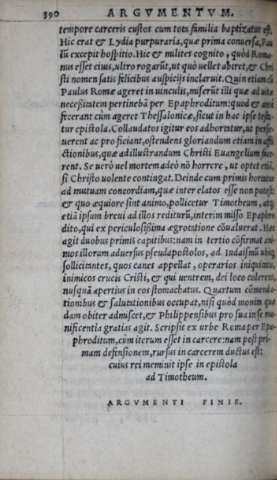 390 ARGVMENTVM.
tempore carceris custos cum tota familia baptizatus est.
Hic erat & Lydia purpuraria, quæ prima conuersa, Pau
lũ excepit hospitio. Hic & milites cognito, quòd Roma-
nus esset ciuis, ultro rogarũt, ut quò uellet abiret, & Chri
sti nomen satis felicibus auspicijs inclaruit. Quin etiam cũ
Paulus Romæ ageret in uinculis, miserũt illi quæ ad uitæ
necessitatem pertinebãt per Epaphroditum: quod & antè
fecerant cùm ageret Thessalonicæ, sicut in hac ipse testa-
tur epistola. Collaudatos igitur eos adhortatur, ut perse-
uerent ac proficiant, ostendens gloriandum etiam in affli
ctionibus, quæ ad illustrandum Christi Euangelium face-
rent. Se uerò uel mortem adeò nõ horrere, ut optet etiã,
si Christo uolente contingat. Deinde cum primis hortatur
ad mutuam concordiam, quæ inter elatos esse non potest:
& quo æquiore sint animo, pollicetur Timotheum, atq;
etiã ipsum breui ad illos rediturũ, interim misso Epaphro
dito, qui ex periculosissima ægrotatione cõualuerat. Hæc
agit duobus primis capitibus: nam in tertio cõfirmat ani-
mos illorum aduersus pseudapostolos, ad Iudaismũ ubiq;
sollicitantes, quos canes appellat, operarios iniquos,
inimicos crucis Cristi, & qui uentrem, dei loco colerent,
nusquã apertius in eos stomachatus. Quartum cõmenda-
tionibus & salutationibus occupat, nisi quòd monita quæ
dam obiter admiscet, & Philippensibus pro sua in se mu-
nificentia gratias agit. Scripsit ex urbe Roma per Epa-
phroditum, cùm iterum esset in carcere: nam post pri-
mam defensionem, rursus in carcerem ductus est:
cuius rei meminit ipse in epistola
ad Timotheum.
ARGVMENTI FINIS.